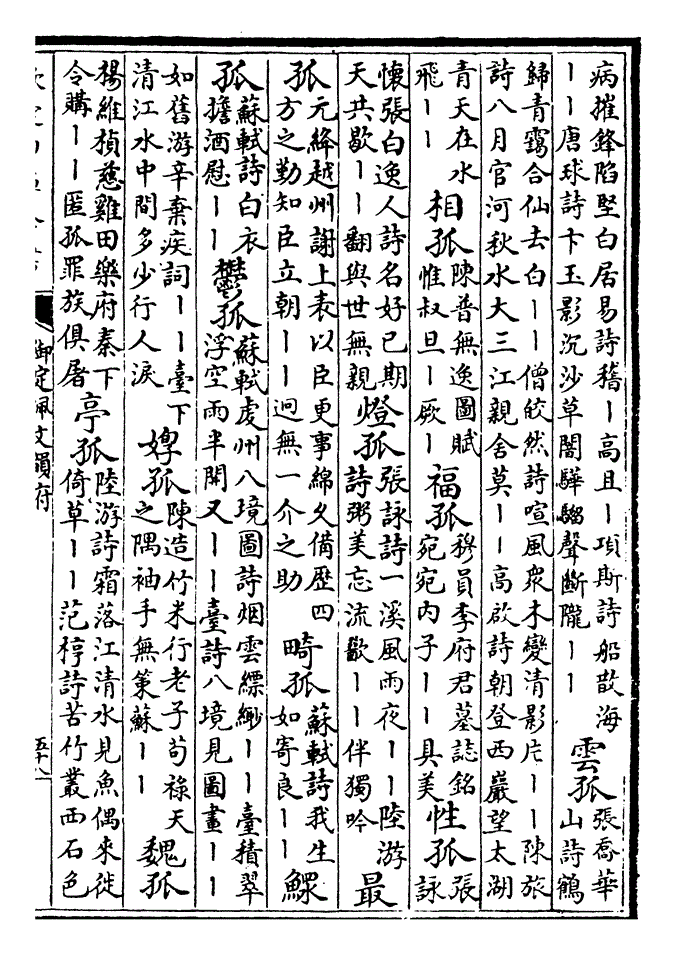 病摧鋒陷堅白居易詩𥡴丨高且丨項斯詩船散海
丨丨唐球詩卞玉影沉沙草闇驊騮聲斷隴丨丨
雲孤
張喬華
山詩鶴
歸青靄合仙去白丨丨僧皎然詩喧風衆木變清影片丨丨陳旅
詩八月官河秋水大三江親舍莫丨丨高啟詩朝登西巖望太湖
青天在水
飛丨丨
相孤
陳普無逸圖賦
惟叔旦丨厥丨
福孤
穆員李府君墓誌銘
宛宛内子丨丨具美
性孤
張
詠
懷張白逸人詩名好已期
天共歇丨丨翻與世無親
燈孤
張詠詩一溪風雨夜丨丨陸游
詩粥美忘流歠丨丨伴獨吟
最
孤
元絳越州謝上表以臣更事綿久備歴四
方之勤知臣立朝丨丨迥無一介之助
畸孤
蘇軾詩我生
如寄良丨丨
鰥
孤
蘇軾詩白衣
擔酒慰丨丨
鬱孤
蘇軾虔州八境圖詩烟雲縹緲丨丨臺積翠
浮空雨半開又丨丨臺詩八境見圖畫丨丨
如舊游辛棄疾詞丨丨臺下
清江水中間多少行人淚
惸孤
陳造竹米行老子苟祿天
之隅袖手無策蘇丨丨
魏孤
楊維楨慈雞田樂府秦下
令購丨丨匿孤罪族俱屠
亭孤
陸游詩霜落江清水見魚偶來徙
倚草丨丨范梈詩苦竹叢西石色
御定佩文韻府
五十八